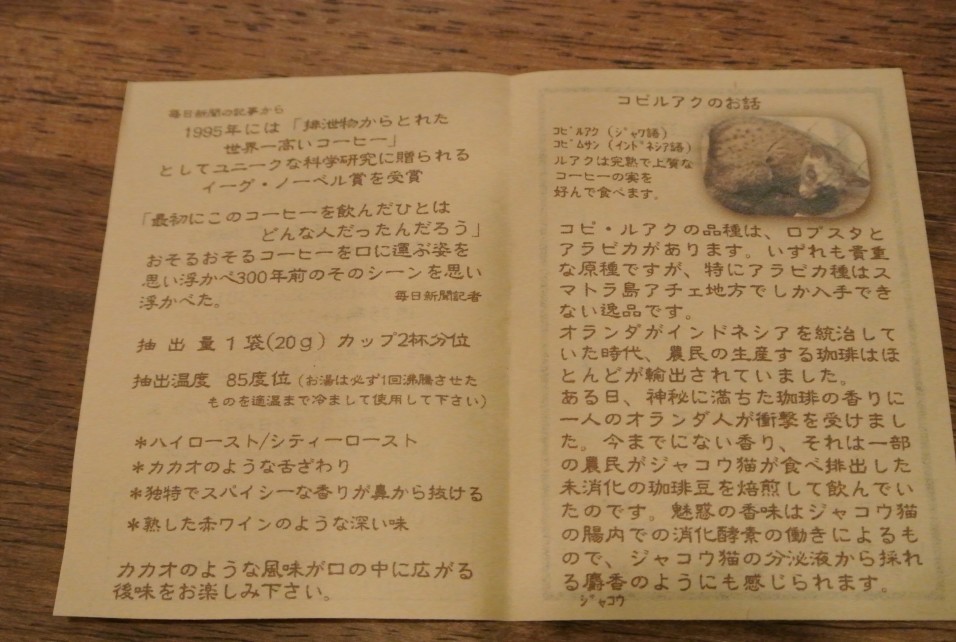 毎日新聞の記事から
1995年には「排泄物からとれた
世界一高いコーヒー」
としてユニークな科学研究に贈られる
イーグ・ノーベル賞を受賞
「最初にこのコーヒーを飲んだひとは
どんな人だったんだろう」
おそるおそるコーヒーを口に運ぶ姿を
思い浮かべ300年前のそのシーンを思い
浮かべた。
毎日新聞記者
抽出量1袋(20g) カップ2杯分位
抽出温度 85度位(お湯は必ず1回沸騰させた
ものを適温まで冷まして使用して下さい)
*ハイロースト/シティーロースト
*カカオのような舌ざわり
*独特でスパイシーな香りが鼻から抜ける
*熟した赤ワインのような深い味
カカオのような風味が口の中に広がる
後味をお楽しみ下さい。
コピルアクのお話
コピ・ルアク(ジャワ語)
コピムサン(インドネシア語)
ルアクは完熟で上質な
コーヒーの実を
好んで食べます。
コピ・ルアクの品種は、ロブスタと
アラビカがあります。いずれも貴重
な原種ですが、特にアラビカ種はス
マトラ島アチェ地方でしか入手でき
ない逸品です。
オランダがインドネシアを統治して
いた時代、農民の生産する珈琲はほ
とんどが輸出されていました。
ある日、神秘に満ちた珈琲の香りに
一人のオランダ人が衝撃を受けまし
た。今までにない香り、それは一部
の農民がジャコウ猫が食べ排出した
未消化の珈琲豆を焙煎して飲んでい
たのです。魅惑の香味はジャコウ猫
の腸内での消化酵素の働きによるも
ので、ジャコウ猫の分泌液から採れ
る麝香のようにも感じられます。
ジャコウ